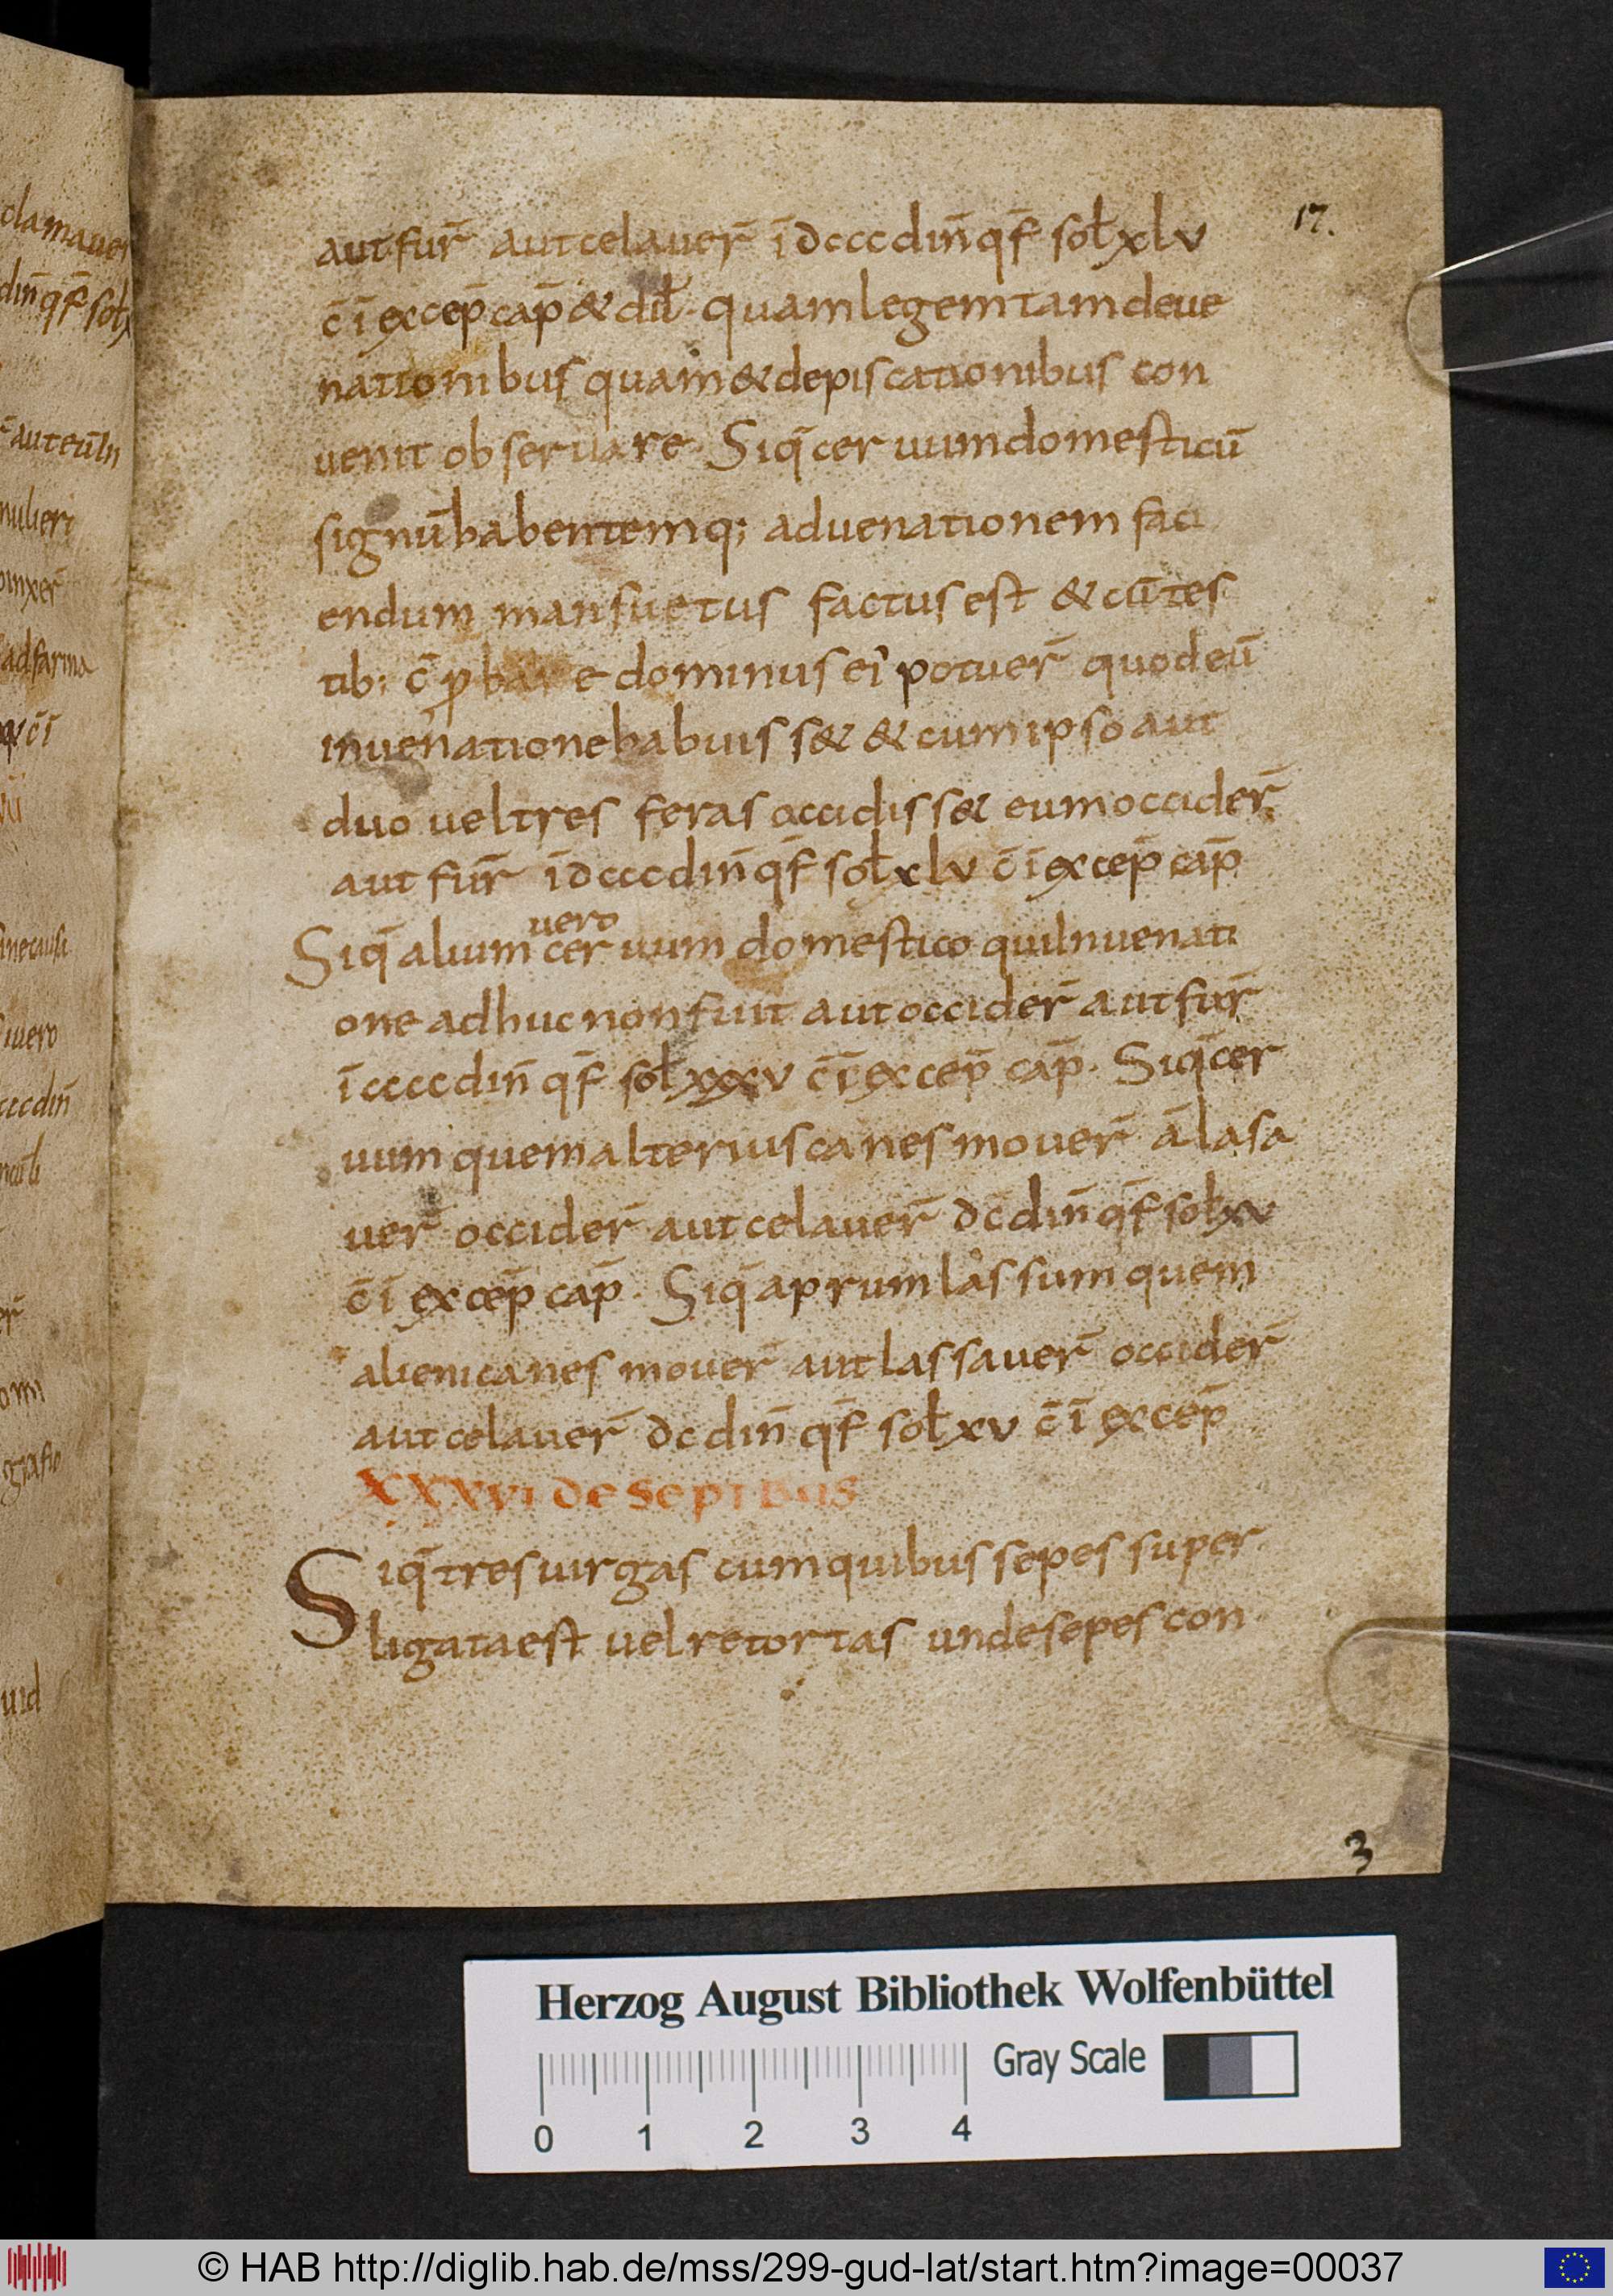 17.
aut fur̄ aut celauer̄ ī dcccdin̄ qf̄ soł xlv
c̄ ī excep̄ cap̄ & dił. quam legem tam de ue
nationibus quam & de piscationibus con
uenit obseruare. Siq̄ ceruum domesticū
signū habentem q; ad uenationem faci
endum mansuetus factus est & cū tes
tib; c̄ ꝓbare dominus ei potuer̄ quod eū
in uenatione habuiss& & cum ipso aut
duo uel tres feras occidiss& eum occider̄
aut fur̄ ī dcccdin̄ qf̄ soł xlv c̄ ī excep̄ cap̄
uero
Siq̄ alium ceruum domestico qui In uenati
one adhuc non fuit aut occider̄ aut fur̄
ī ccccdin̄ qf̄ soł xxxv c̄ ī excep̄ cap̄. Siq̄ cer
uum quem alterius canes mouer̄ ā lasa
uer̄ occider̄ aut celauer̄ dc̄ din̄ qf̄ soł xv
c̄ ī excep̄ cap̄. Siq̄ aprum lassum quem
alieni canes mouer̄ aut lassauer̄ occider̄
aut celauer̄ dc din̄ qf̄ soł xv c̄ ī excep̄
XXXVI de sepibus
Siq̄ tres uirgas cum quibus sepes super
ligata est uel retortas unde sepes con
3
Herzog August Bibliothek Wolfenbüttel
Gray Scale
0 1 2 3 4
© HAB http://diglib.hab.de/mss/299-gud-lat/start.htm?image=00037